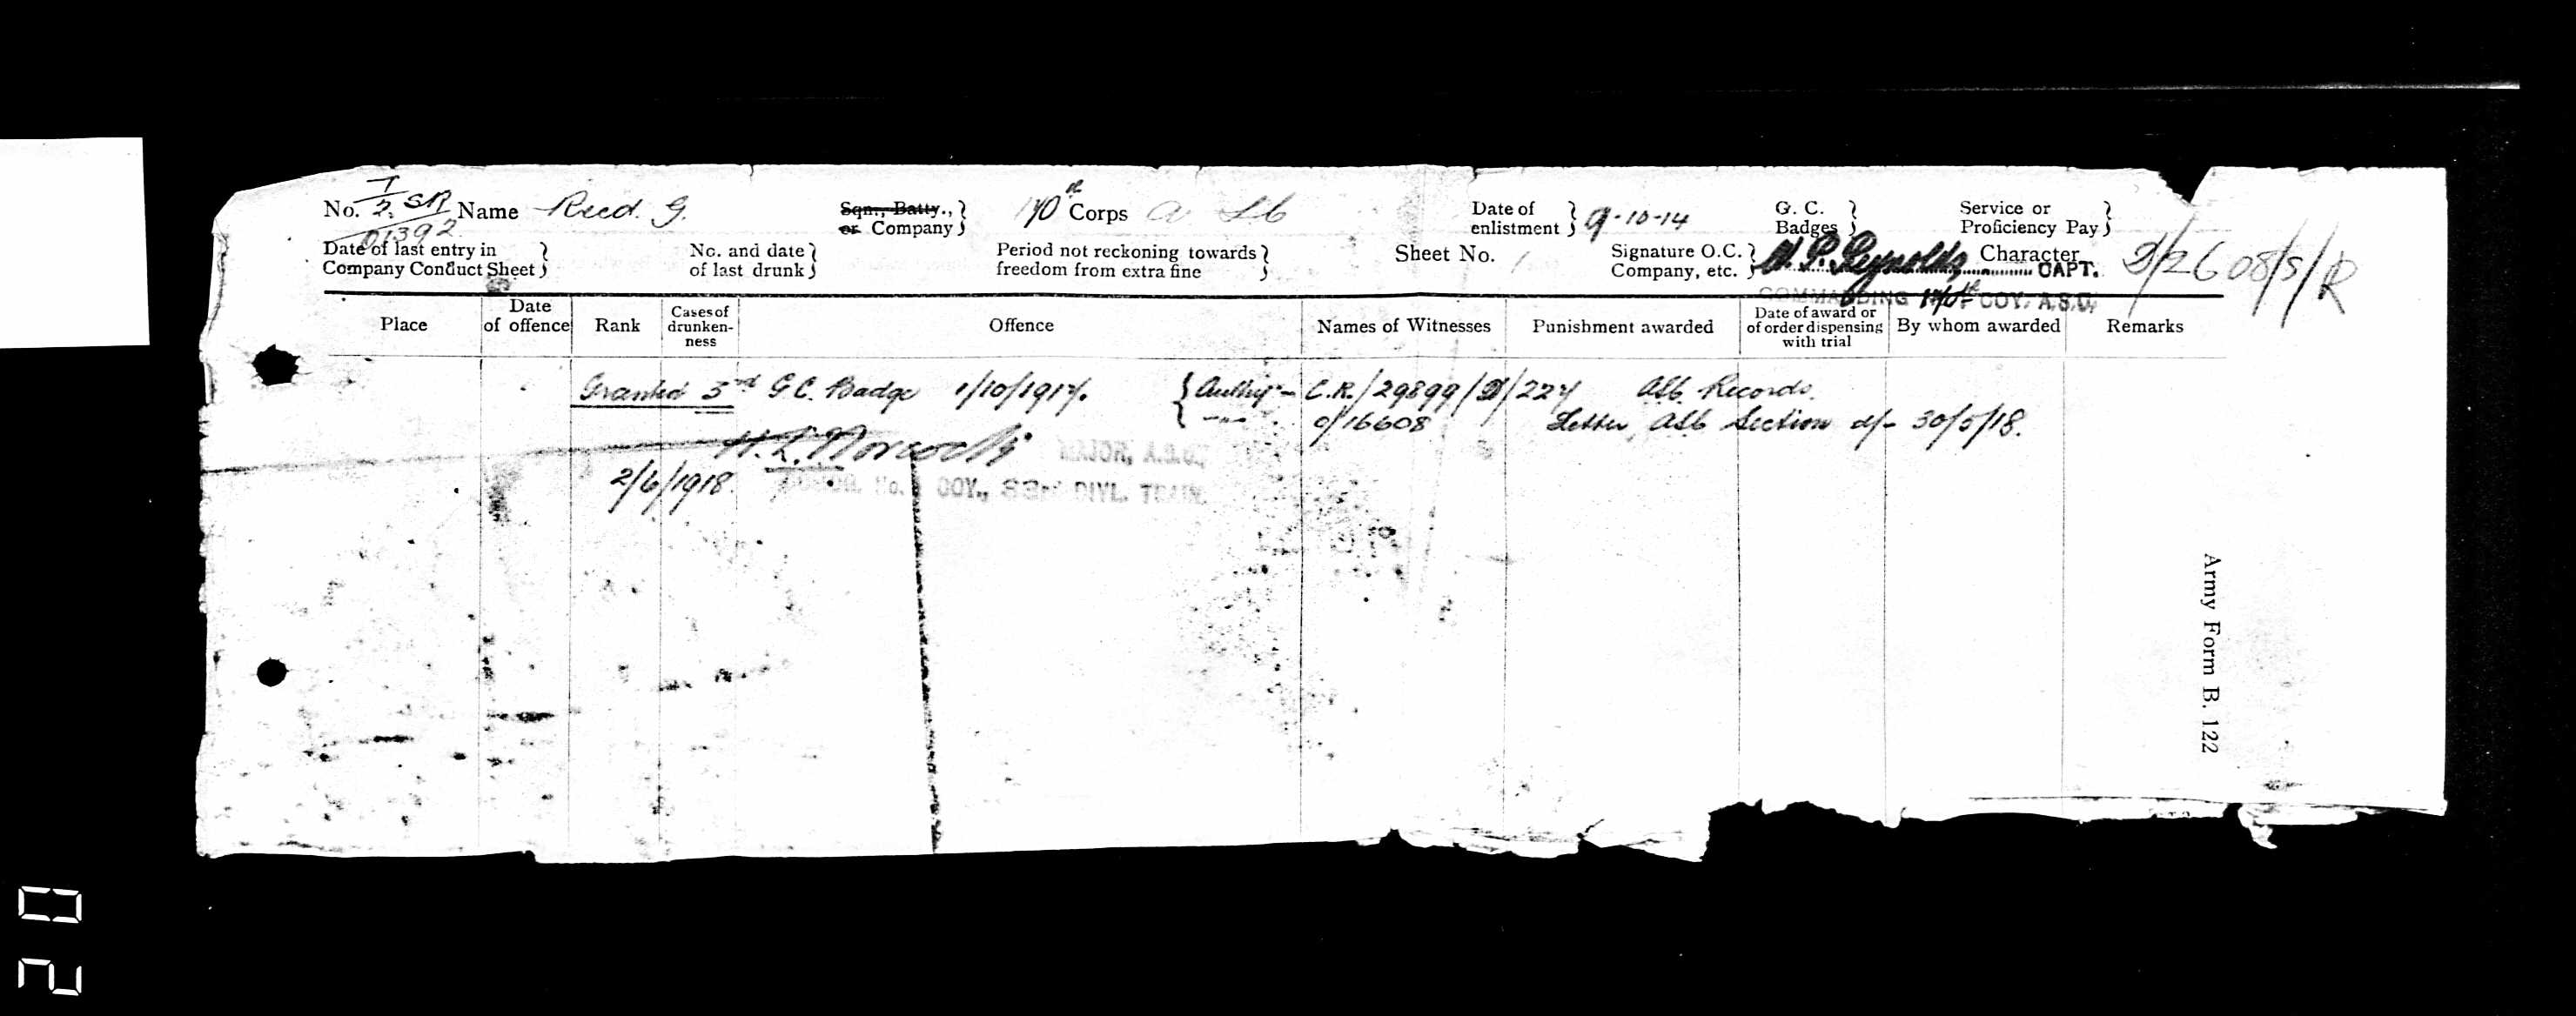 No. T/2. SR/01392 Name Reed. G. Sqn., Batty., or Company 170th Corps A S C Date of enlistment 9-10-14 G. C. Badges Service or Proficiency Pay
Date of last entry in Company Conduct Sheet No. and date of last drunk Period not reckoning towards freedom from extra fine Sheet No. 1 Signature O.C. Company, etc. P. Reynolds CAPT. Character
COMMANDING 170th COY. A.S.C.
Place Date of offence Rank Cases of drunken-ness Offence Names of Witnesses Punishment awarded Date of award or of order dispensing with trial By whom awarded Remarks
Granted 3rd G.C. Badge 1/10/1917. Authy - C.R./29899/ /227 ASC Records.
" 0/16608 Letter ASC Section d/- 30/5/18.
MAJOR, A.S.C.,
2/6/1918. No. COY., DIVL. TRAIN.
Army Form B. 122
20